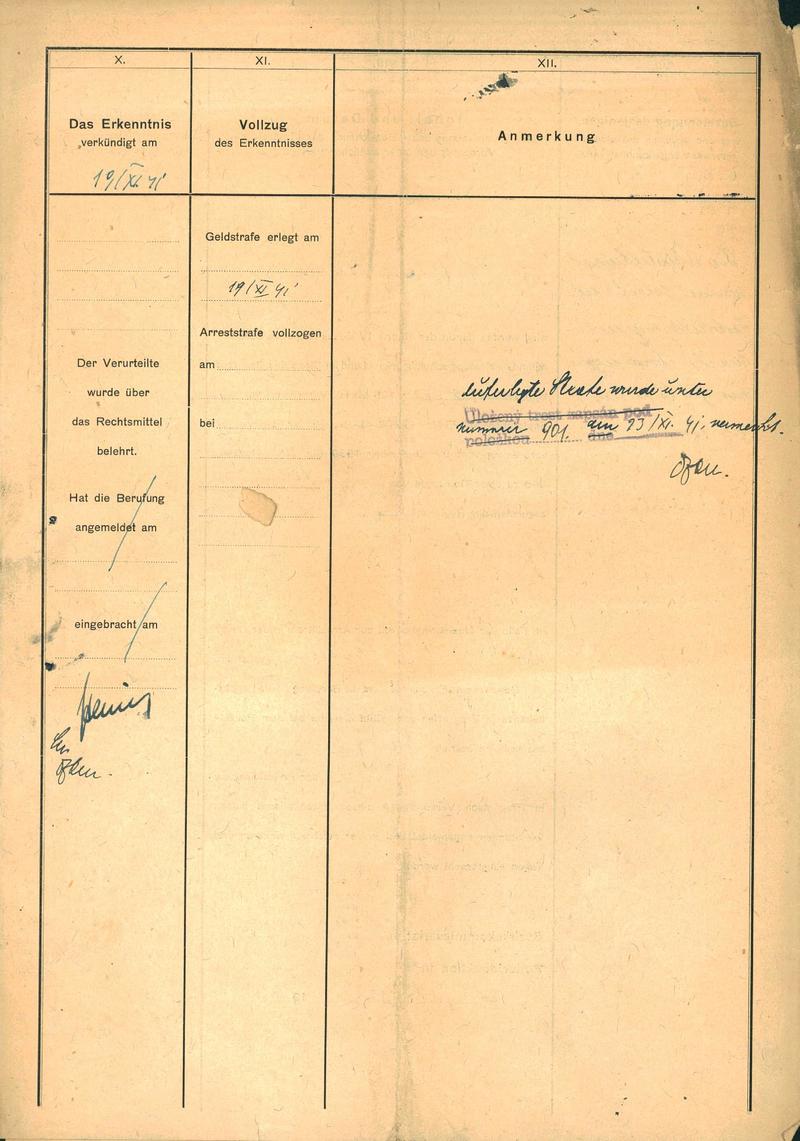 X.
Das Erkenntnis
verkündigt am
19/XI. 41
Der Verurteilte
wurde über
das Rechtsmittel
belehrt.
Hat die Berufung
angemeldet am
eingebracht am
XI.
Vollzug
des Erkenntnisses
Geldstrafe erlegt am
19/XI 41
Arreststrafe vollzogen
am
bei
XII.
Anmerkung
auferlegte Strafe wurde unter
Uložený trest zapsán pod
nummer 901. am 23/XI. 41. vermerkt.
položkou dne